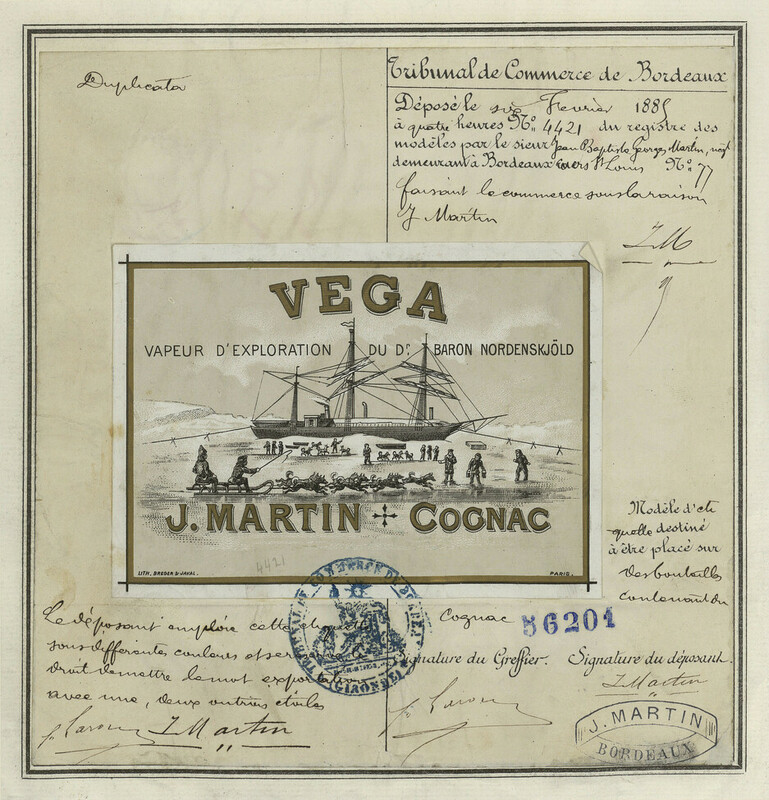 Duplicata
Tribunal de Commerce de Bordeaux
Déposé le six Fevrier 1885
à quatre heures N° 4421 du registre des
modèles par le sieur Jean Baptiste Georges Martin, négt
demeurant à Bordeaux cours St Louis N° 77
faisant le commerce sous la raison
J Martin
JM
VEGA
VAPEUR D'EXPLORATION DU Dr. BARON NORDENSKJÖLD
J. MARTIN COGNAC
LITH. BREDER & JAVAL.
PARIS.
4421
Modèle d'éti
quette destiné
à être placé sur
des bouteilles
contenant du
Cognac
56201
Le déposant emploie cette
sous différentes couleurs et se réserve le
droit de mettre le mot exportation
avec une, deux ou trois étoiles
J Martin
TRIBUNAL DE COMMERCE DE BORDEAUX
(GIRONDE)
Signature du Greffier.
Signature du déposant.
J Martin
J. MARTIN
BORDEAUX